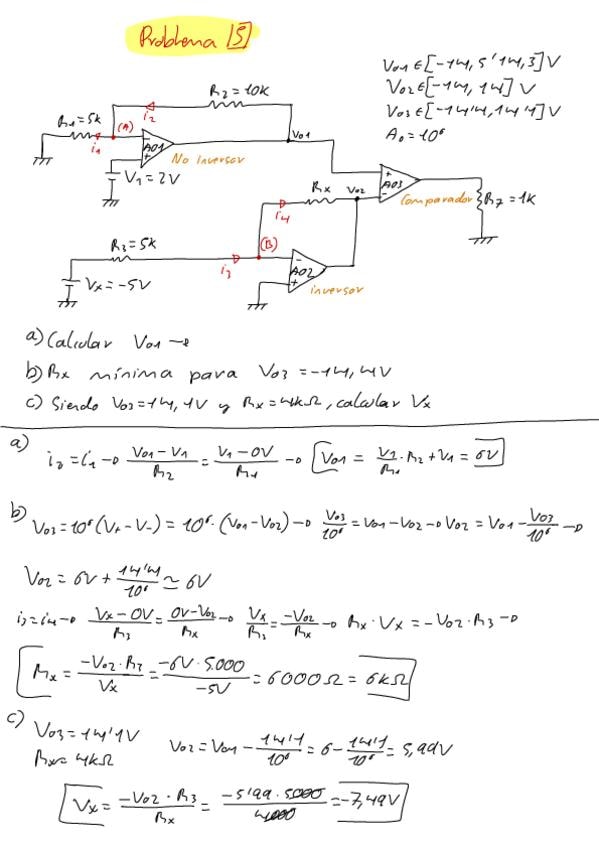 Problema 5
Vo1 ∈ [-14,5'14,3] V
Vo2 ∈ [-14, 14] V
Vo3 ∈ [-14'4, 14'1] V
A₀ = 10⁶
R2 = 10k
i2
R1 = 5k
(A)
i1
-
+
AO1
No inversor
Vo1
V1 = 2V
+
-
AO3
Comparador
R7 = 1k
Rx
Vo2
i4
R3 = 5k
(B)
i3
-
+
AO2
inversor
Vx = -5V
a) Calcular Vo1 →
b) Rx mínima para Vo3 = -14,4V
c) Siendo Vo3 = 14,1V y Rx = 4kΩ, calcular Vx
a)
i2 = i1 → (Vo1 - V1)/R2 = (V1 - 0V)/R1 → Vo1 = V1/R1 · R2 + V1 = 6V
b)
Vo3 = 10⁶(V+ - V-) = 10⁶·(Vo1 - Vo2) → Vo3/10⁶ = Vo1 - Vo2 → Vo2 = Vo1 - Vo3/10⁶ →
Vo2 = 6V + 14'4/10⁶ ≃ 6V
i3 = i4 → (Vx - 0V)/R3 = (0V - Vo2)/Rx → Vx/R3 = -Vo2/Rx → Rx · Vx = -Vo2 · R3 →
Rx = (-Vo2 · R3)/Vx = (-6V · 5.000)/-5V = 6000Ω = 6kΩ
c)
Vo3 = 14'1V
Rx = 4kΩ
Vo2 = Vo1 - 14'1/10⁶ = 6 - 14'1/10⁶ = 5,99V
Vx = (-Vo2 · R3)/Rx = (-5'99 · 5.000)/4.000 = -7,49V